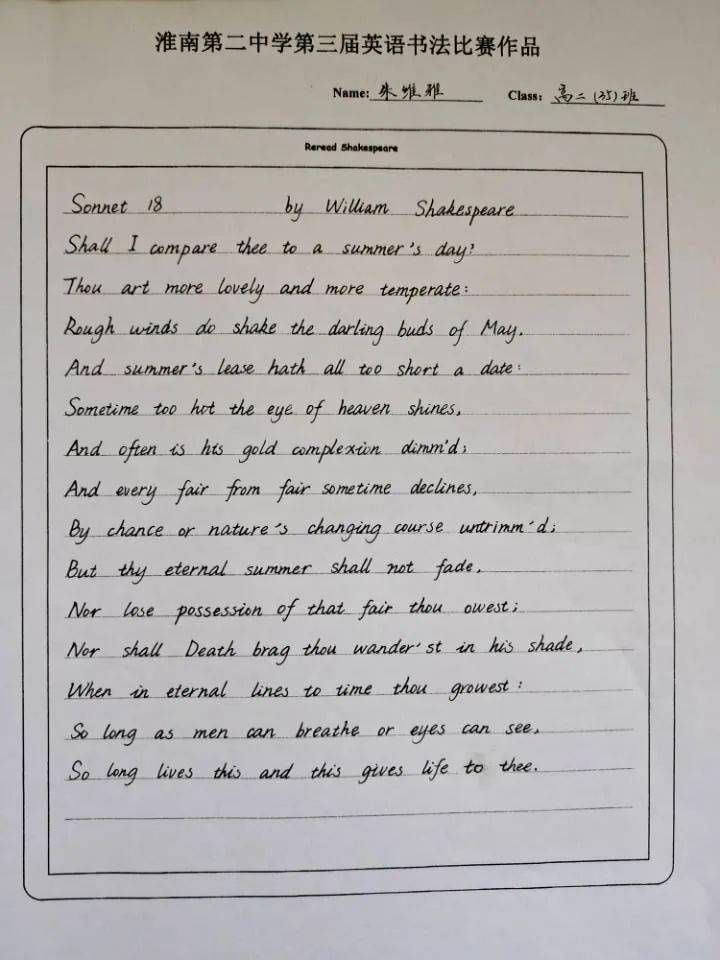 淮南第二中学第三届英语书法比赛作品
Name: 朱维雅 Class: 高二(35)班
Reread Shakespeare
Sonnet 18 by William Shakespeare
Shall I compare thee to a summer's day?
Thou art more lovely and more temperate:
Rough winds do shake the darling buds of May,
And summer's lease hath all too short a date:
Sometime too hot the eye of heaven shines,
And often is his gold complexion dimm'd;
And every fair from fair sometime declines,
By chance or nature's changing course untrimm'd;
But thy eternal summer shall not fade,
Nor lose possession of that fair thou owest;
Nor shall Death brag thou wander'st in his shade,
When in eternal lines to time thou growest:
So long as men can breathe or eyes can see,
So long lives this and this gives life to thee.